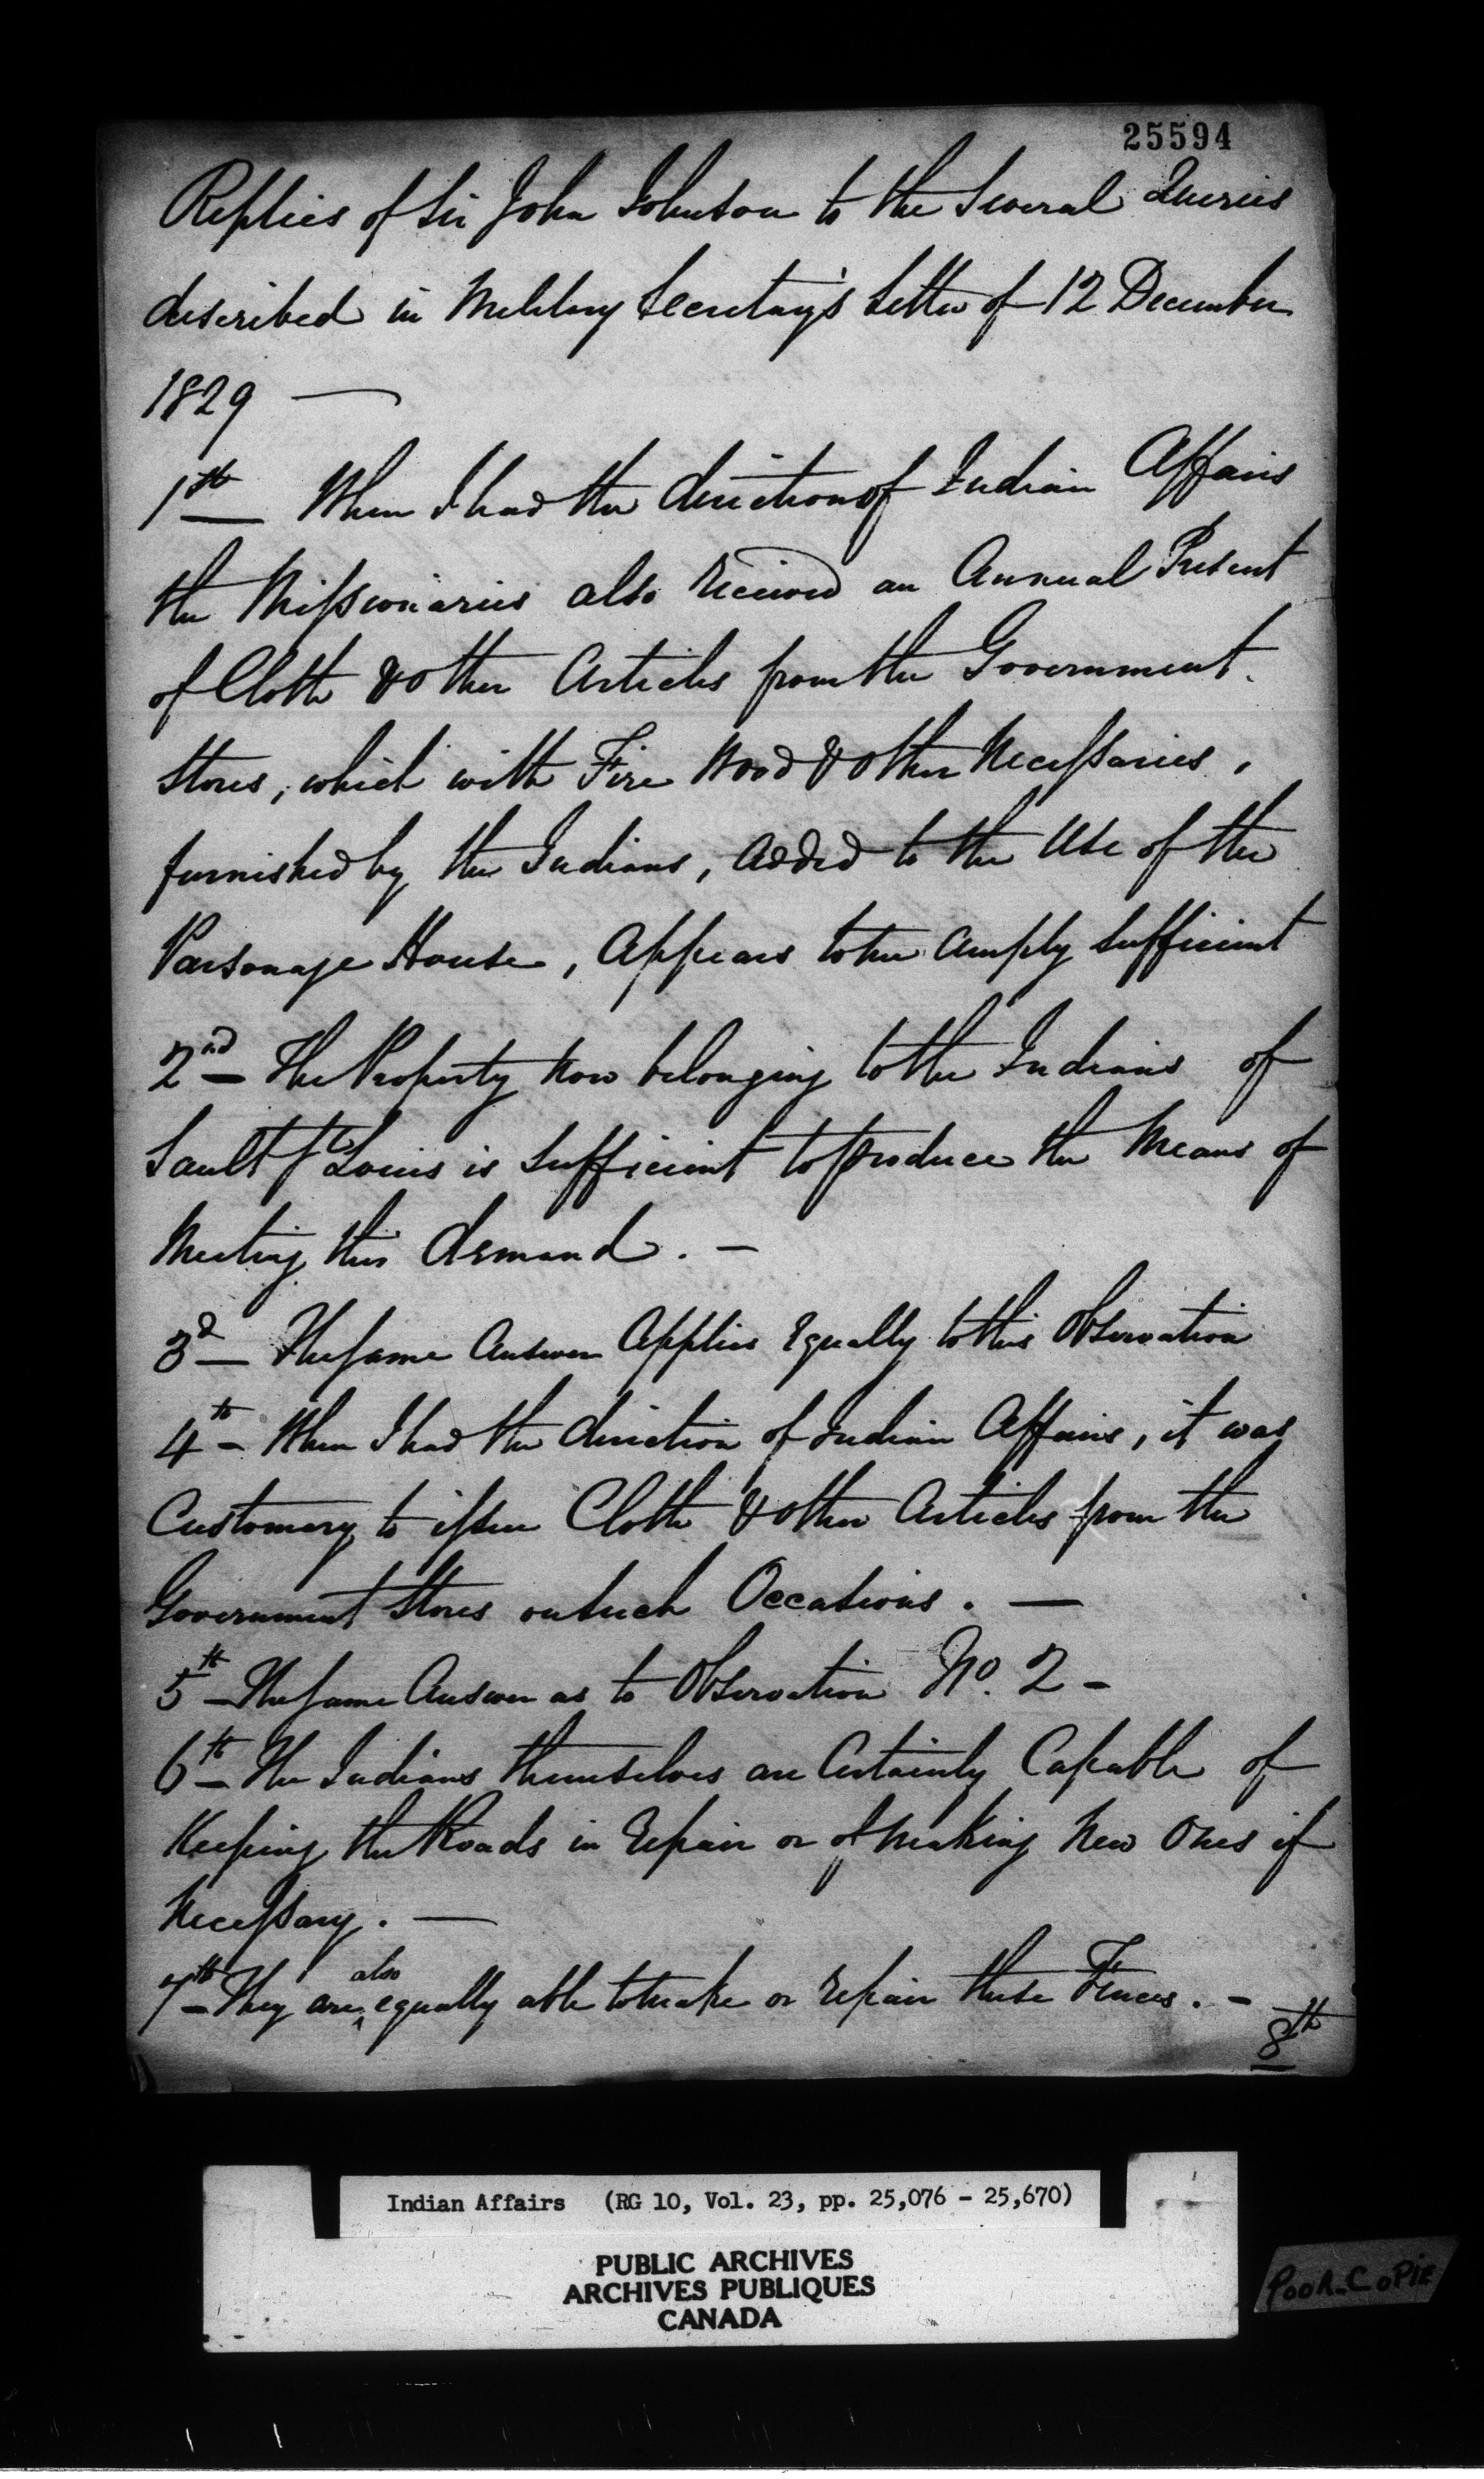 25594
Replies of Sir John Johnson to the Several Queries
described in Military Secretary's Letter of 12 December
1829 —
1st When I had the direction of Indian Affairs
the Missionaries also received an Annual Present
of Cloth & other Articles from the Government
Stores, which with Fire Wood & other Necessaries,
furnished by the Indians, added to the Use of the
Parsonage House, Appears to me amply Sufficient
2nd — The Property now belonging to the Indians of
Sault St Louis is Sufficient to produce the Means of
Meeting this demand. —
3d — The same Answer Applies Equally to this Observation
4th — When I had the direction of Indian Affairs, it was
Customary to issue Cloth & other Articles from the
Government Stores on such Occasions. —
5th — The same Answer as to Observation No. 2 —
6th — The Indians themselves are Certainly Capable of
Keeping the Roads in Repair or of Making New Ones if
Necessary. —
7th — They are also equally able to make or repair these Fences. —
8th
Indian Affairs (RG 10, Vol. 23, pp. 25,076 - 25,670)
PUBLIC ARCHIVES
ARCHIVES PUBLIQUES
CANADA
POOR COPIE